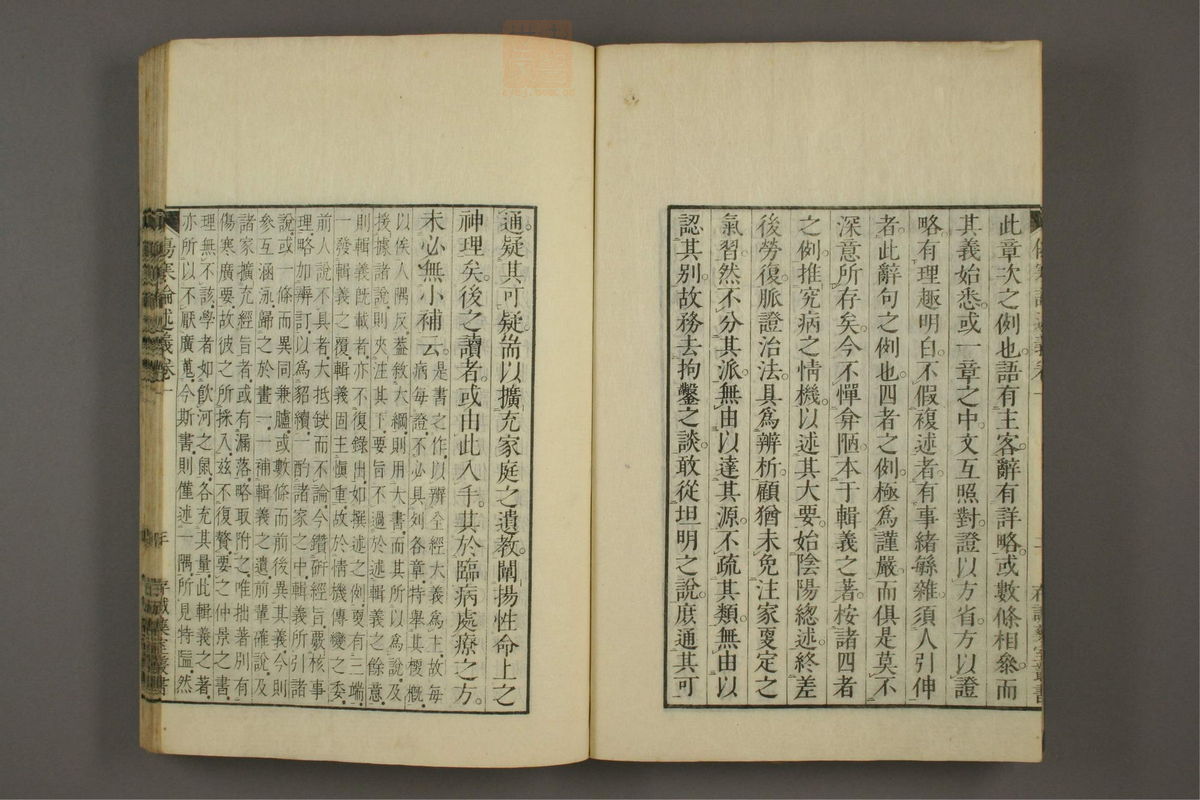 此章次之例也。語有主客。辭有詳略。或數條相參。而
其義始悉。或一章之中。文互照對。證以方省。方以證
略。有理趣明白。不假複述者。有事緒緐雜。須人引伸
者。此辭句之例也。四者之例。極爲謹嚴。而俱是莫不
深意所存矣。今不憚弇陋。本于輯義之著。桉諸四者
之例。推究病之情機。以述其大要。始陰陽總述。終差
後勞復。脈證治法。具爲辨析。顧猶未免注家更定之
氣習。然不分其派。無由以達其源。不疏其類。無由以
認其別。故務去拘鑿之談。敢從坦明之說。庶通其可
通。疑其可疑。耑以擴充家庭之遺教。闡揚性命上之
神理矣。後之讀者。或由此入手。其於臨病處療之方。
未必無小補云。
是書之作。以辨全經大義爲主。故每
病每證。不必具列各章。特舉其槩概。
以俟人隅反。蓋敘大綱。則用大書。而其所以爲說。及
援據諸說。則夾注其下。要旨不過於述輯義之餘意。
則輯義既載者。亦不復錄出。如撰述之例。更有三端。
一發輯義之覆。輯義固主愼重。故於情機傳變之委。
前人說不具者。大抵缺而不論。今鑽硏經旨。覈核事
理。略加辨訂。以爲貂續。一酌諸家之中。輯義所引諸
說。或一條而異同兼臚。或數條而前後異其義。今則
參互涵泳。歸之於畫一。一補輯義之遺。前輩確說。及
諸家擴充經旨者。或有漏落。略取附之。唯拙著別有
傷寒廣要。故彼之所採入。玆不復贅。要之仲景之書。
理無不該。學者如飮河之鼠。各充其量。此輯義之著。
亦所以不厭廣蒐。今斯書則僅述一隅所見。特隘。然
傷寒論述義卷一
存誠藥室叢書